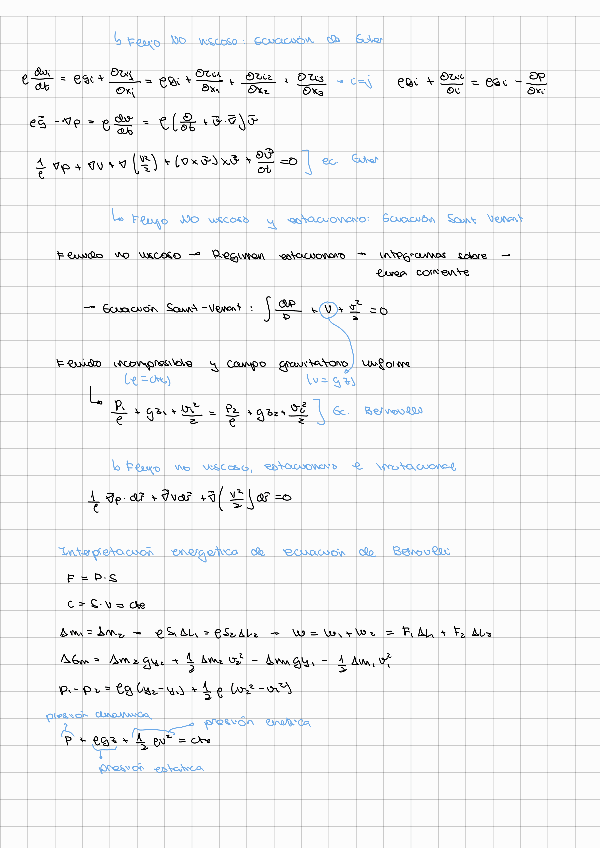 ↳ Flujo no viscoso: Ecuación de Euler
ρ dvi/dt = ρgi + ∂τij/∂xj = ρgi + ∂τi1/∂x1 + ∂τi2/∂x2 + ∂τi3/∂x3 → i=j ρgi + ∂τii/∂i = ρgi - ∂p/∂xi
ρg⃗ - ∇p = ρ dv⃗/dt = ρ(∂/∂t + v⃗·∇⃗)v⃗
1/ρ ∇p + ∇V + ∇(v²/2) + (∇×v⃗)×v⃗ + ∂v⃗/∂t = 0 ] ec. Euler
↳ Flujo no viscoso y estacionario: Ecuación Saint Venant
Fluido no viscoso → Régimen estacionario → integramos sobre →
línea corriente
→ Ecuación Saint-Venant: ∫ dp/ρ + V + v²/2 = 0
Fluido incompresible y campo gravitatorio uniforme
(ρ=cte) (V=gz)
↳ p1/ρ + gz1 + v1²/2 = p2/ρ + gz2 + v2²/2 ] Ec. Bernoulli
↳ Flujo no viscoso, estacionario e irrotacional
1/ρ ∇⃗p·dr⃗ + ∇⃗Vdr⃗ + ∇⃗(v²/2)dr⃗ = 0
Interpretación energética de ecuación de Bernoulli
F = P·S
C = S·v = cte
Δm1 = Δm2 → ρS1ΔL1 = ρS2ΔL2 → W = W1 + W2 = F1ΔL1 + F2ΔL2
ΔEm = Δm2gy2 + 1/2 Δm2v2² - Δm1gy1 - 1/2 Δm1v1²
p1 - p2 = ρg(y2-y1) + 1/2 ρ(v2²-v1²)
presión dinámica presión cinética
p + ρgz + 1/2 ρv² = cte
presión estática